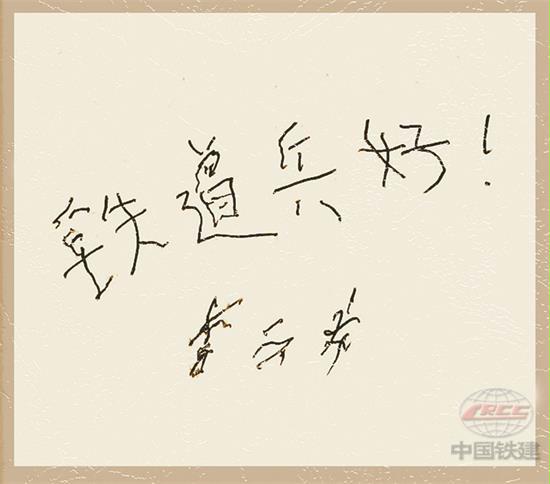 铁道兵好！
CRCC
中国铁建